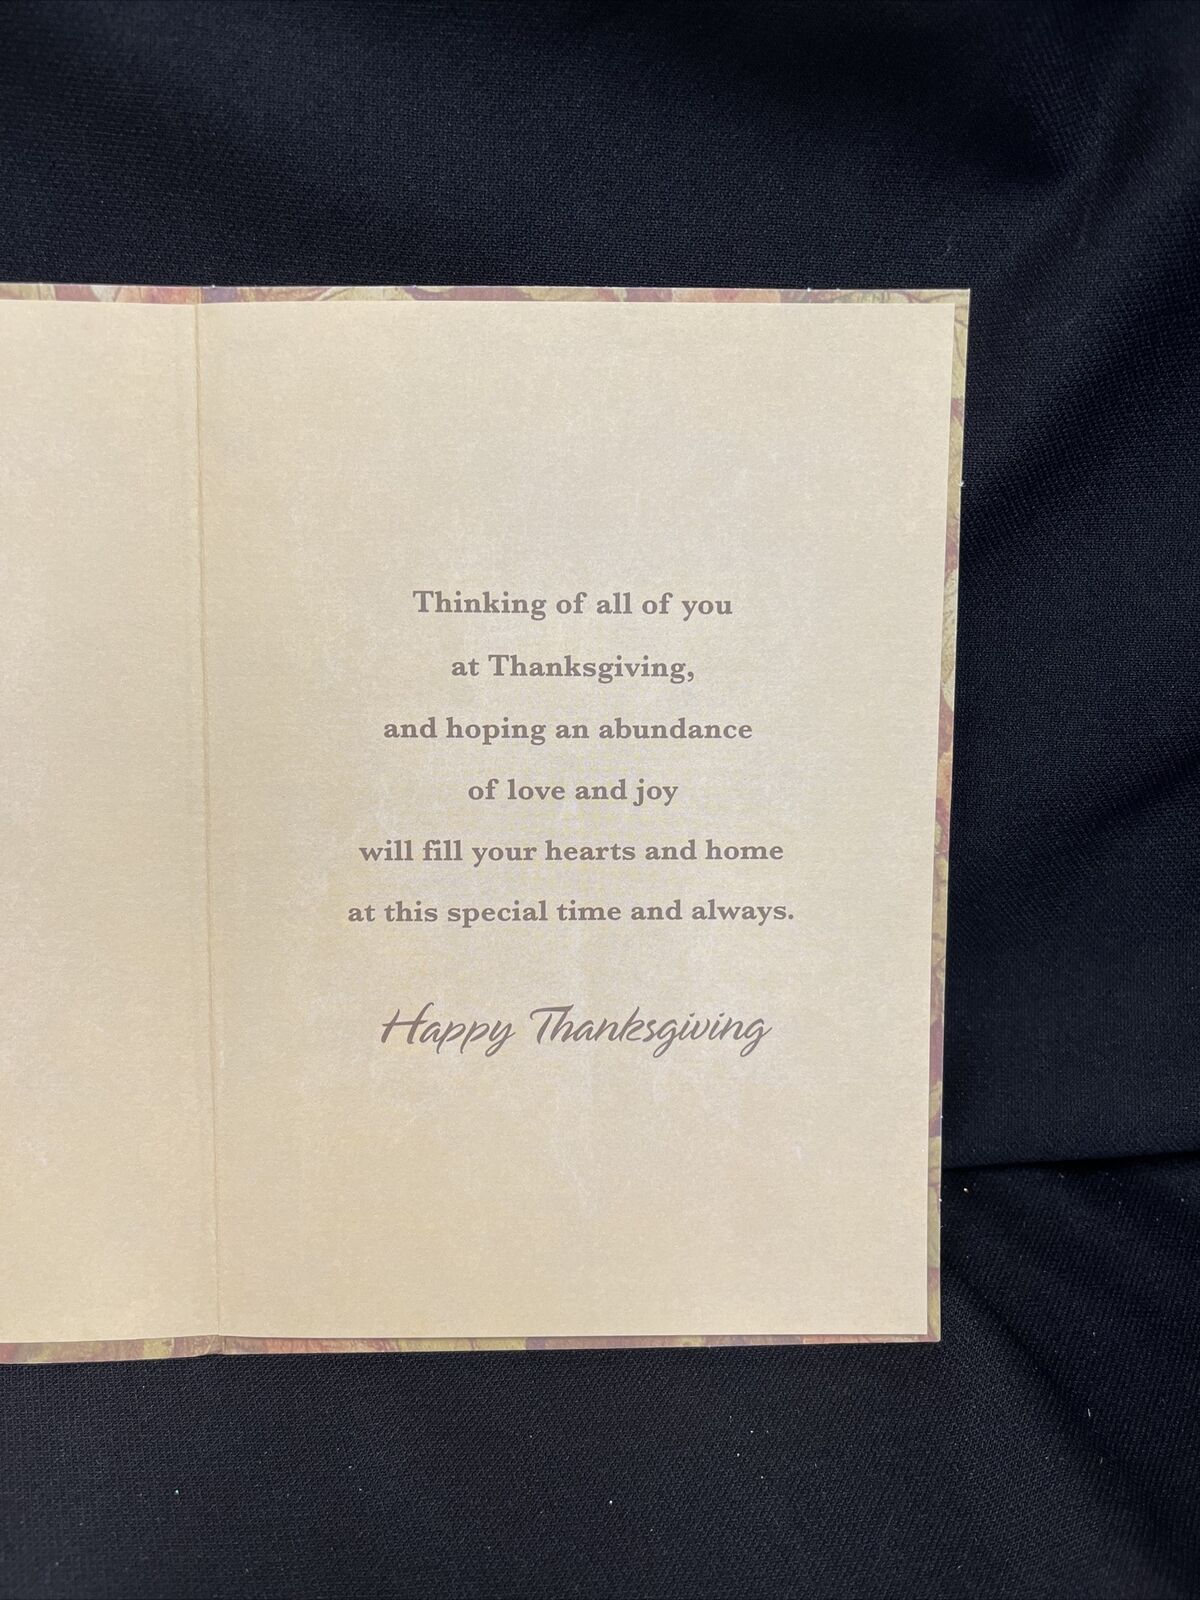 Thinking of all of you
at Thanksgiving,
and hoping an abundance
of love and joy
will fill your hearts and home
at this special time and always.
Happy Thanksgiving